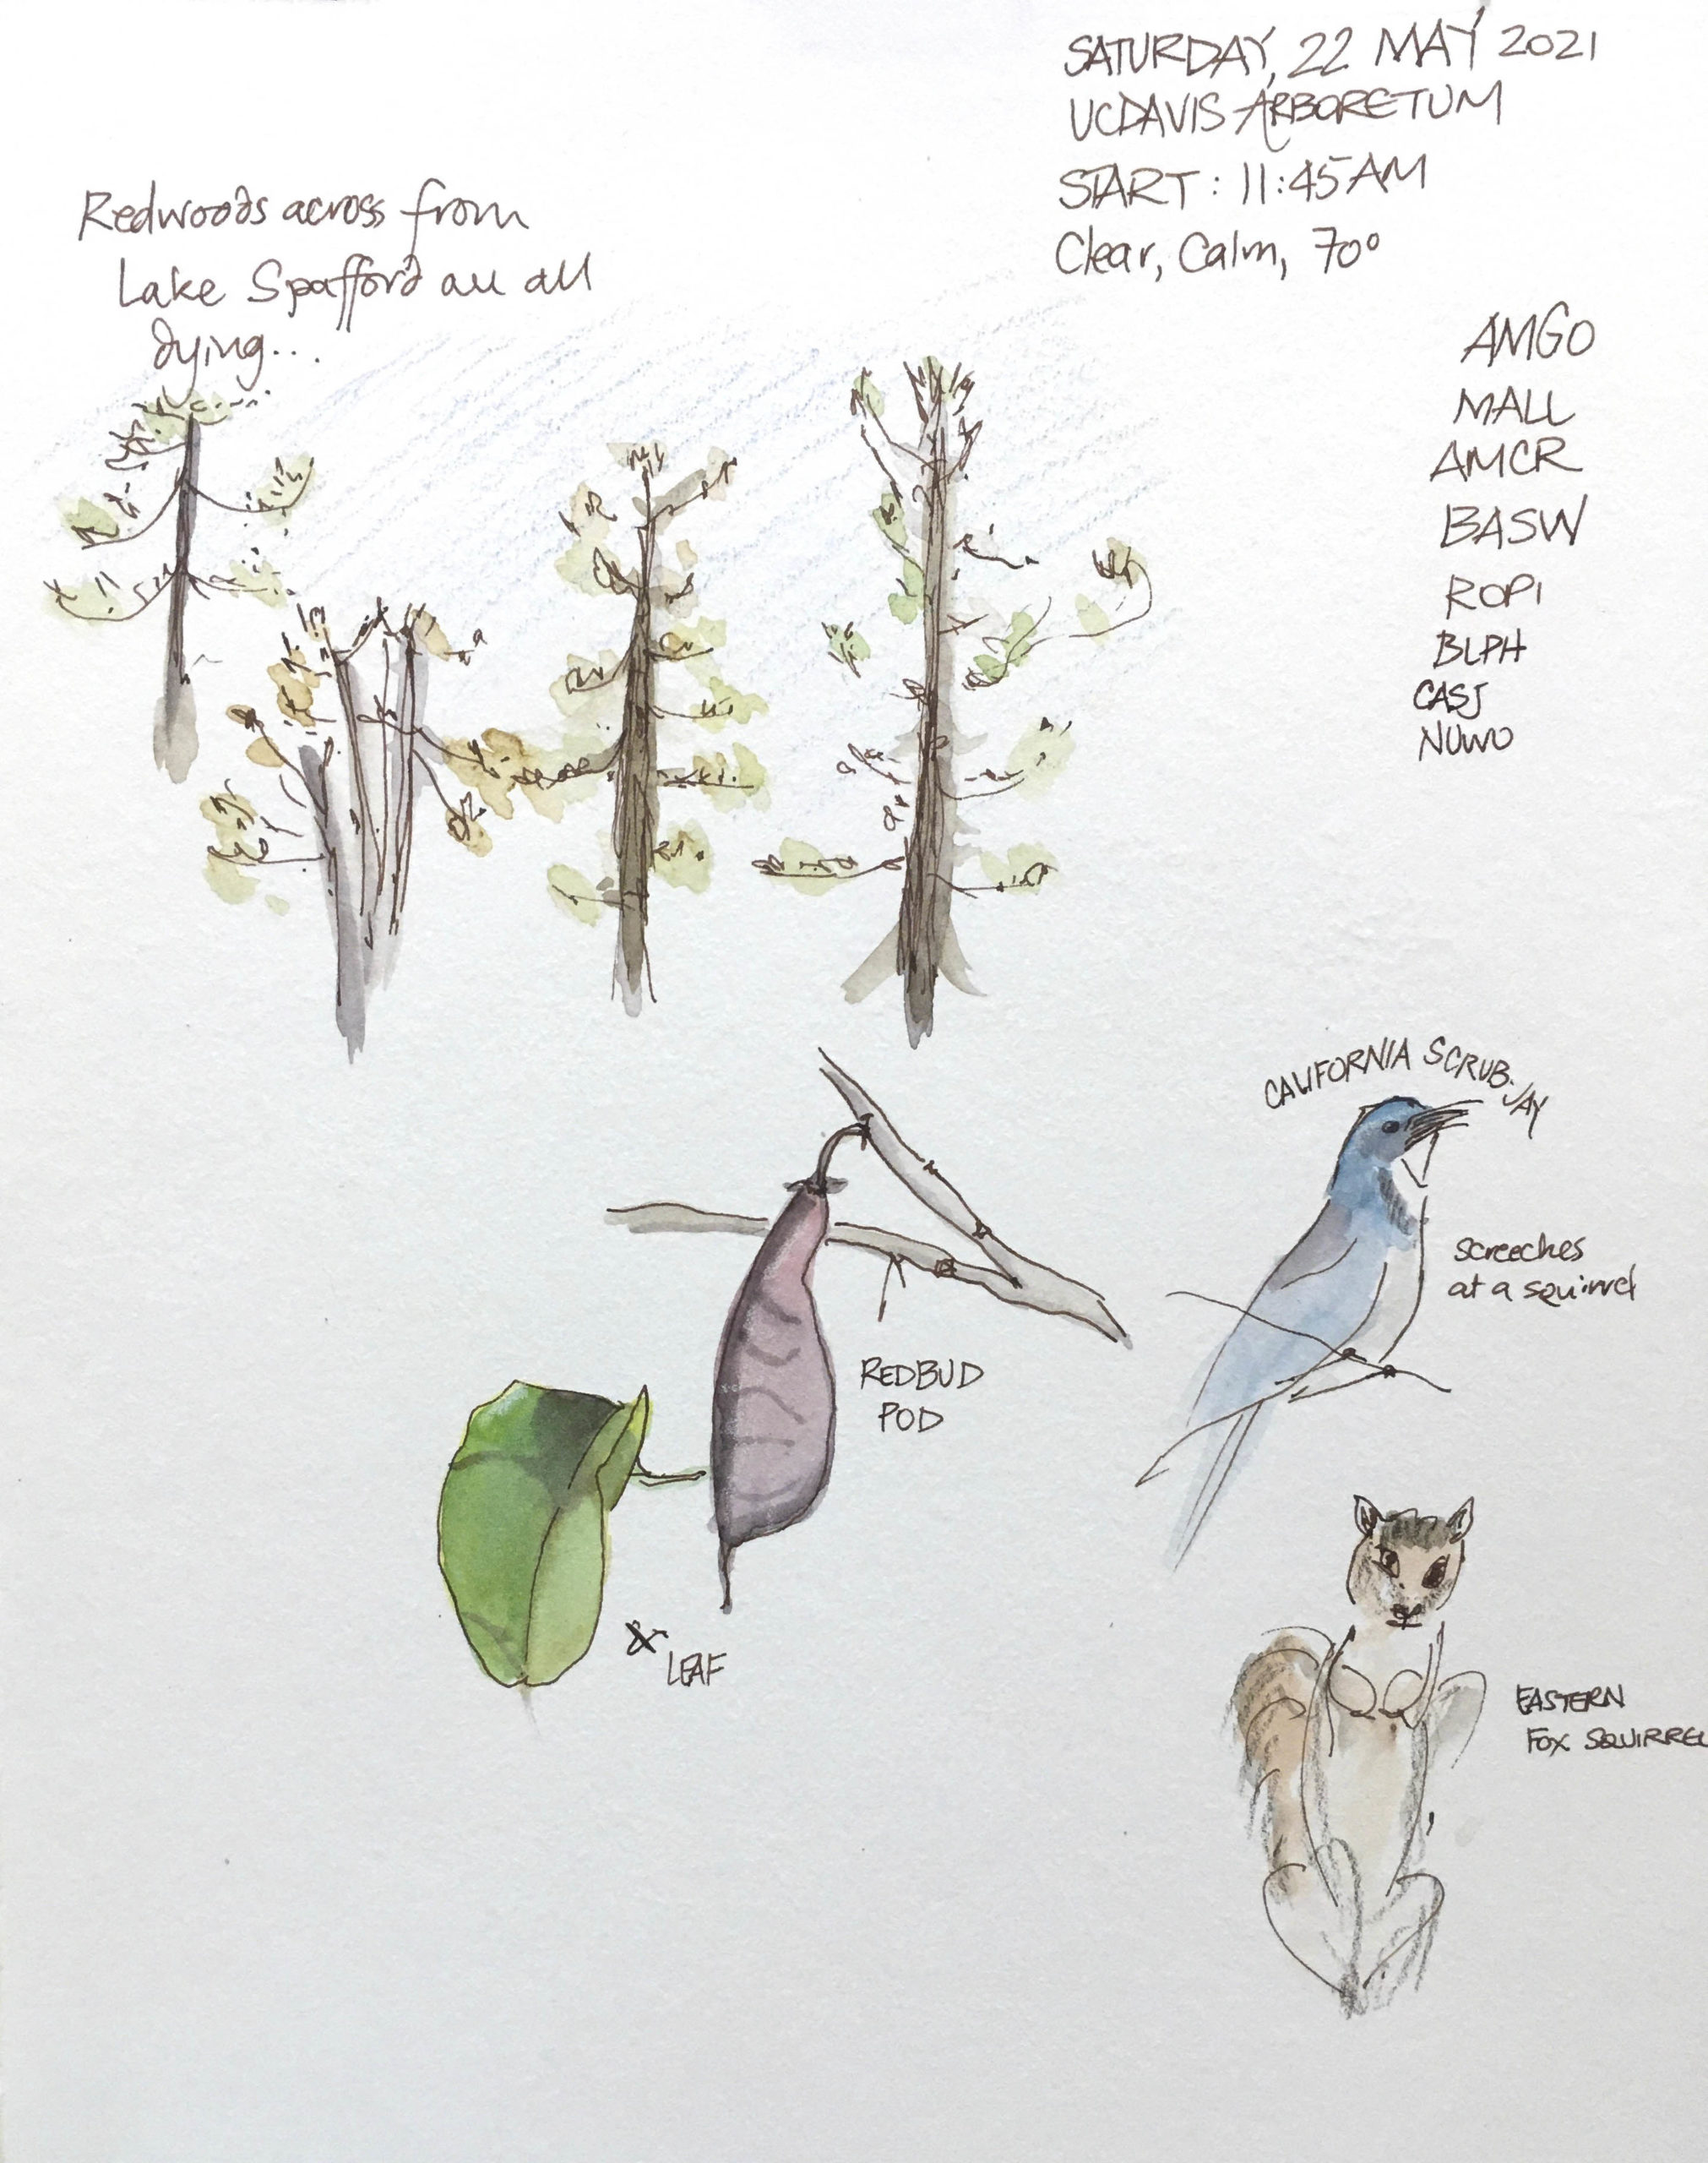 SATURDAY, 22 MAY 2021
UCDAVIS ARBORETUM
START: 11:45AM
Clear, Calm, 70°
Redwoods across from
Lake Spafford are all
dying...
AMGO
MALL
AMCR
BASW
ROPI
BLPH
CASJ
NUWO
CALIFORNIA SCRUB-JAY
Screeches
at a squirrel
REDBUD
POD
& LEAF
EASTERN
FOX SQUIRREL